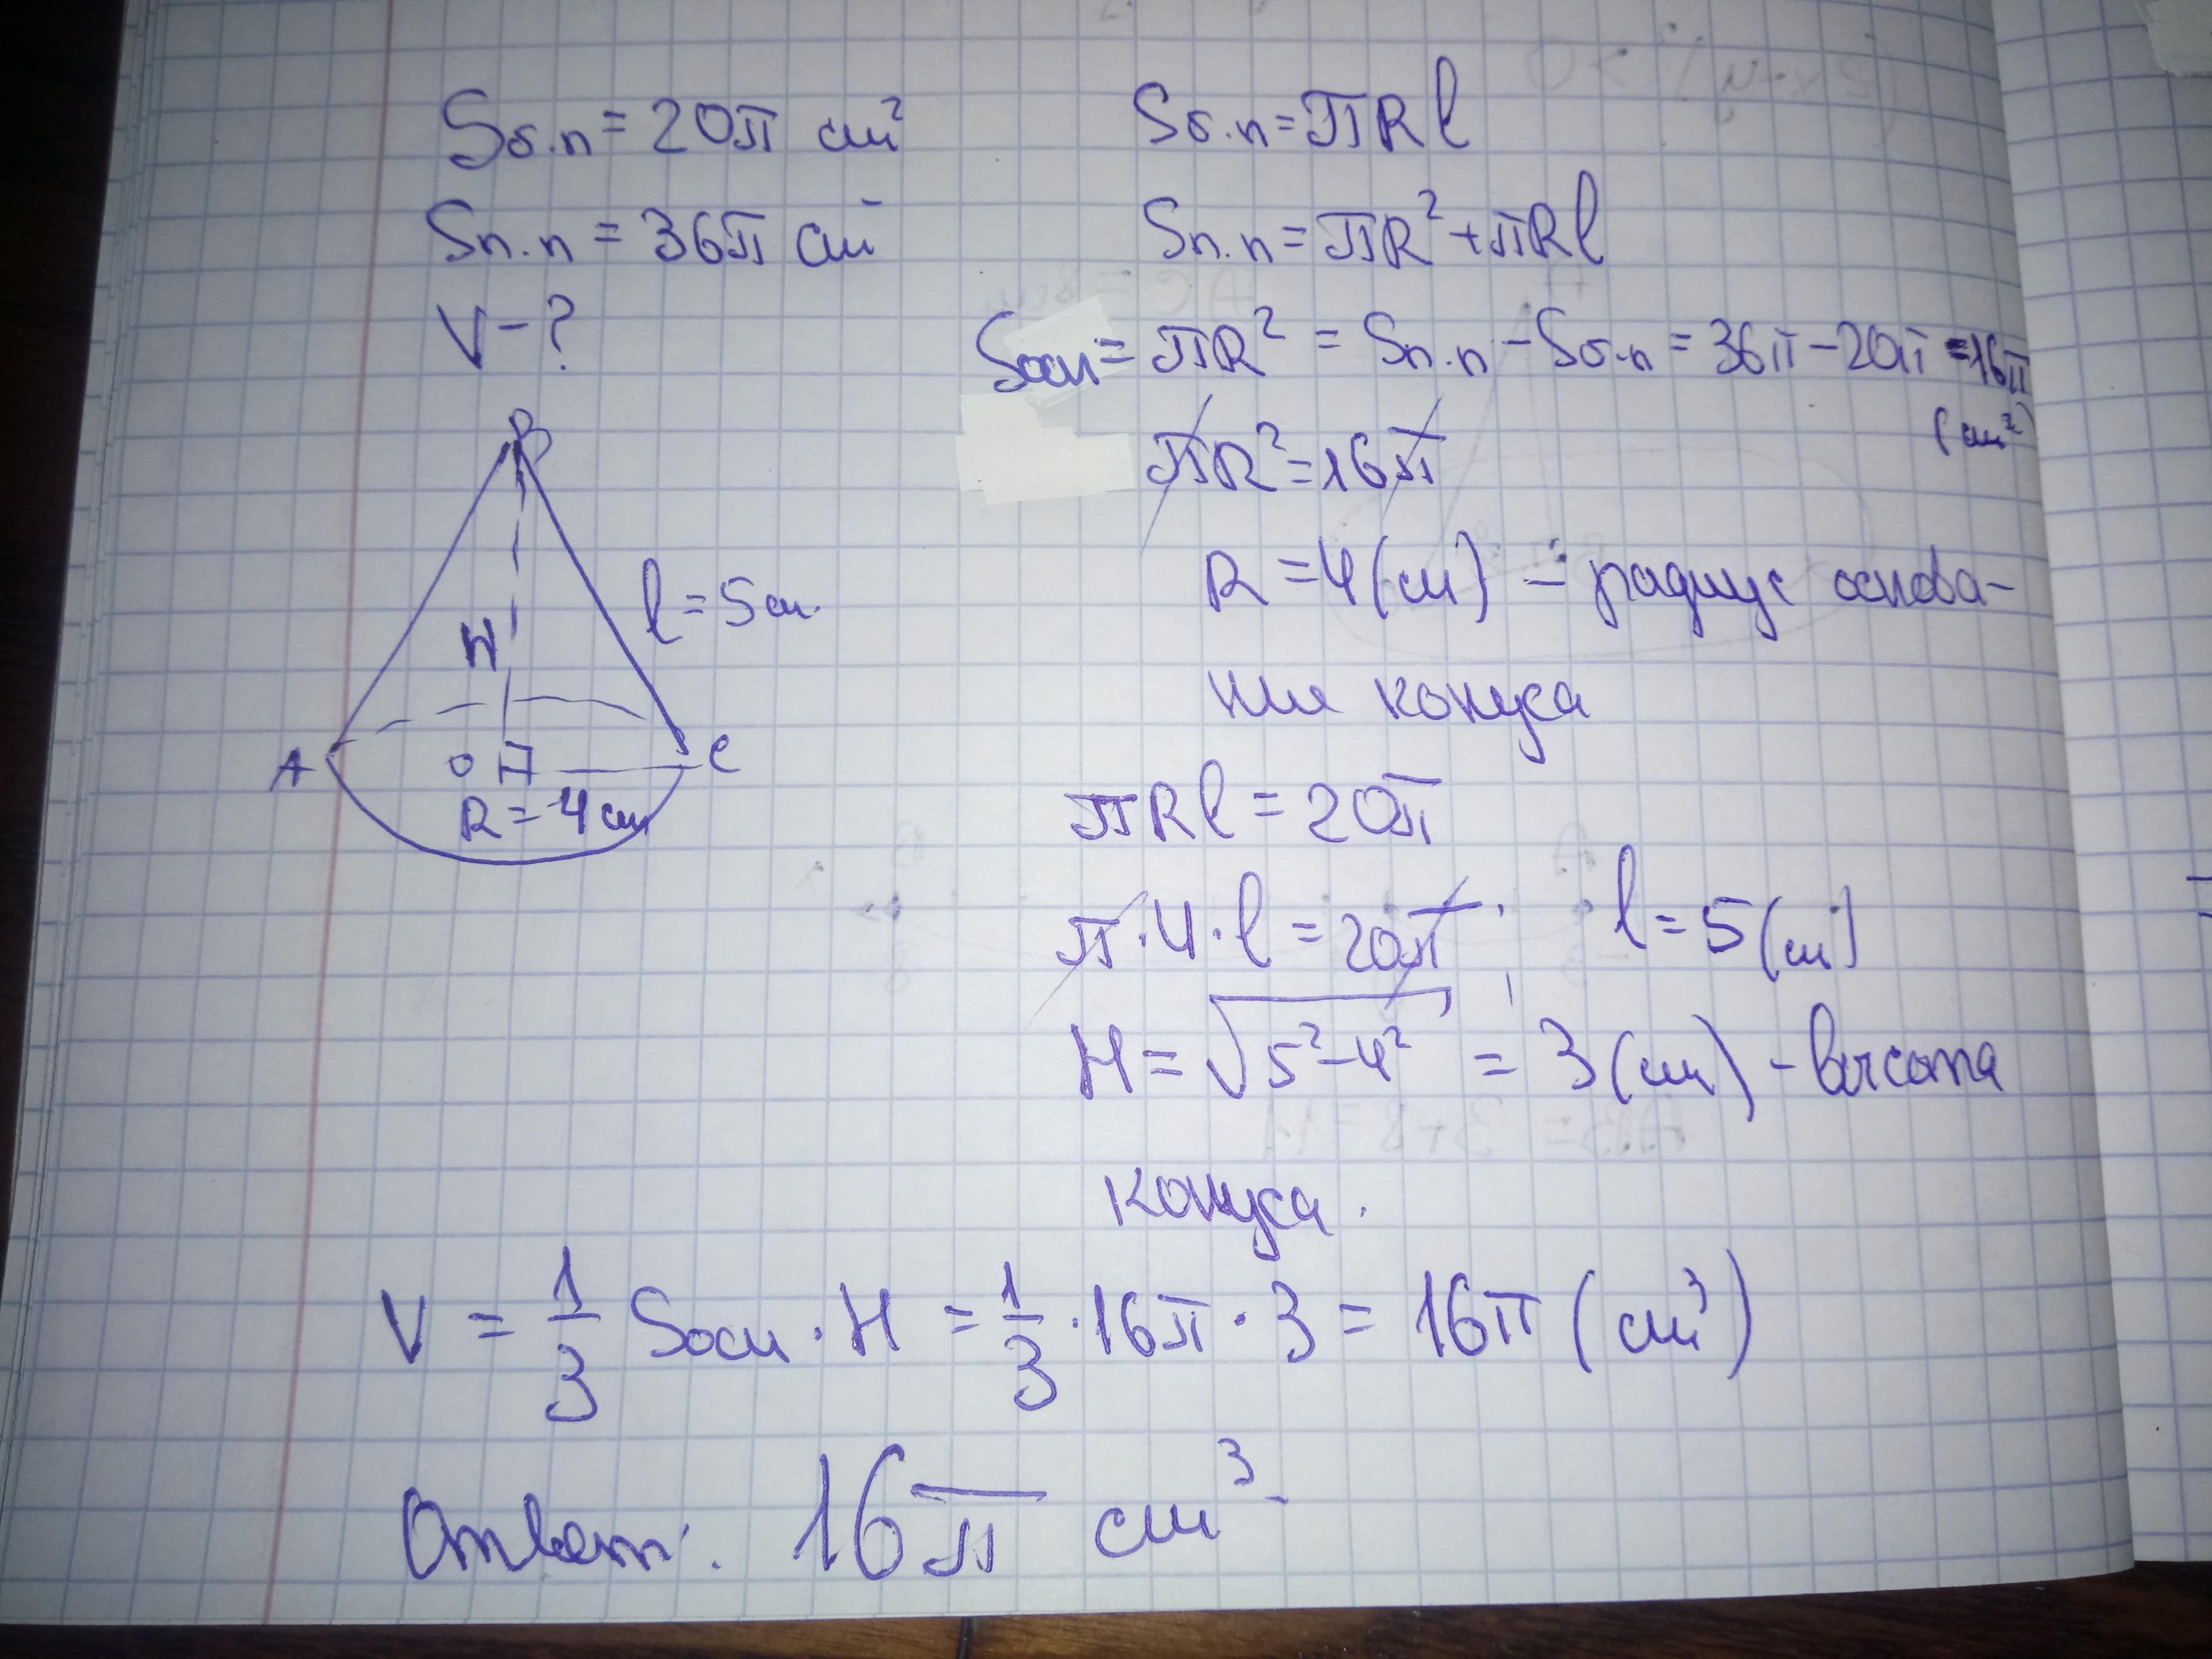 Sб.п = 20π см²
Sп.п = 36π см
V - ?
B
H
l = 5 см.
A
O
C
R = 4 см
Sб.п = πRl
Sп.п = πR² + πRl
Sосн = πR² = Sп.п - Sб.п = 36π - 20π = 16π
(см²)
πR² = 16π
R = 4 (см) - радиус основа-
ния конуса
πRl = 20π
π · 4 · l = 20π ; l = 5 (см)
H = √5² - 4² = 3 (см) - высота
конуса.
V = 1/3 Sосн · H = 1/3 · 16π · 3 = 16π (см³)
Ответ: 16π см³